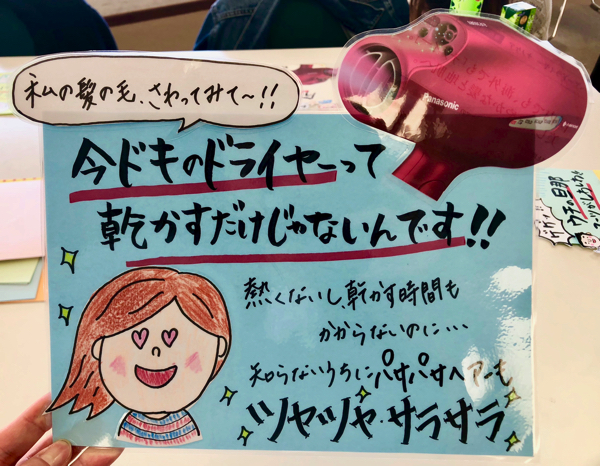 私の髪の毛、さわってみて〜!!
Panasonic
今ドキのドライヤーって
乾かすだけじゃないんです!!
熱くないし、乾かす時間も
かからないのに・・・
知らないうちにパサパサヘアーも
ツヤツヤ・サラサラ
ウチの旦那